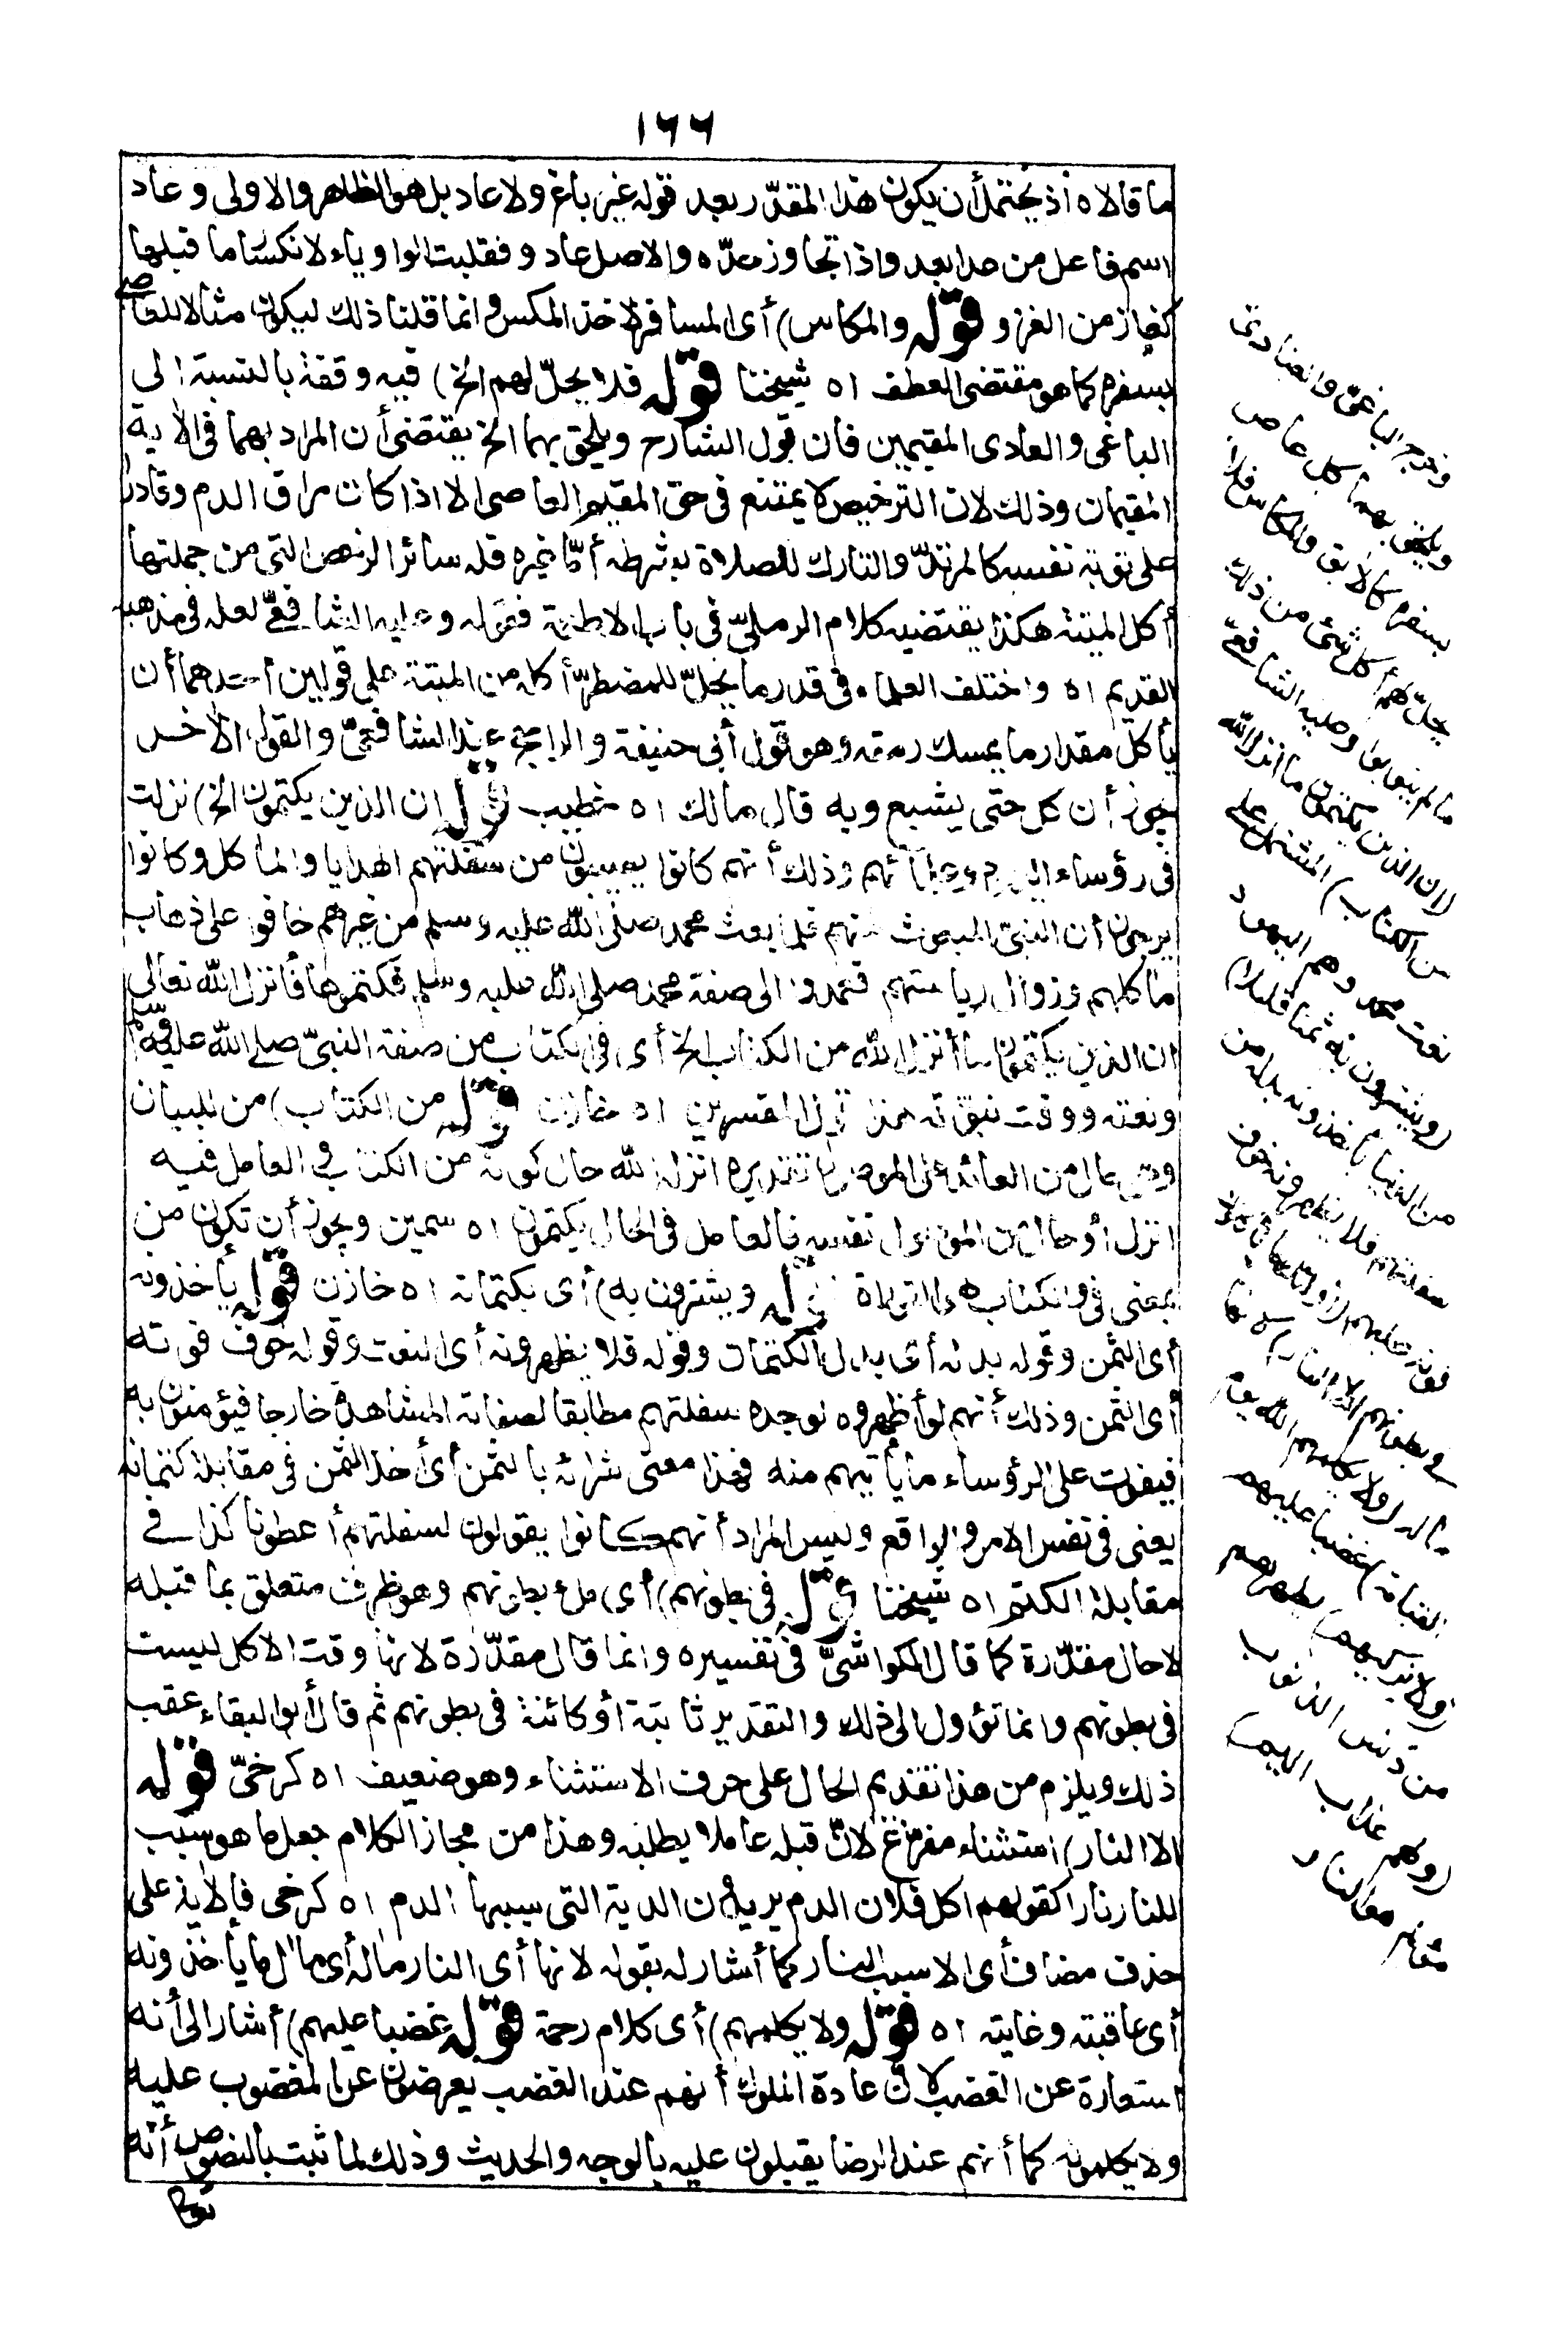 ١٦٦
ما قالاه اذ يحتمل أن يكون هذا المقدّر بعد قوله غير باغ ولا عاد بل هو الظاهر والاولى وعاد
اسم فاعل من عدا يعدو اذا تجاوز حدّه والاصل عادو فقلبت الواو ياء لانكسار ما قبلها
كغاز من الغزو قوله والمكاس) أى المسافر لاخذ المكس وانما قلنا ذلك ليكون مثالا للعاصى
بسفره كما هو مقتضى العطف اه شيخنا قوله فلا يحلّ لهم الخ) فيه وقفة بالنسبة الى
الباغى والعادى المقيمين فان قول الشارح ويلحق بهما الخ يقتضى أن المراد بهما فى الآية
المقيمان وذلك لان الترخيص لا يمتنع فى حق المقيم العاصى الا اذا كان مراق الدم وقادرا
على توبة نفسه كالمرتدّ والتارك للصلاة بشرطه أمّا غيره فله سائر الرخص التى من جملتها
أكل الميتة هكذا يقتضيه كلام الرملىّ فى باب الاطعمة فقوله وعليه الشافعىّ لعله فى مذهبه
القديم اه واختلف العلماء فى قدر ما يحلّ للمضطرّ أكله من الميتة على قولين أحدهما أن
يأكل مقدار ما يمسك رمقه وهو قول أبى حنيفة والراجح عند الشافعىّ والقول الآخر
يجوز أن يأكل حتى يشبع وبه قال مالك اه خطيب قوله ان الذين يكتمون الخ) نزلت
فى رؤساء اليهود وعلمائهم وذلك أنهم كانوا يصيبون من سفلتهم الهدايا والمآكل وكانوا
يرجون أن النبىّ المبعوث منهم فلما بعث محمد صلى الله عليه وسلم من غيرهم خافوا على ذهاب
مآكلهم وزوال رياستهم فعمدوا الى صفة محمد صلى الله عليه وسلم فكتموها فأنزل الله تعالى
ان الذين يكتمون ما أنزل الله من الكتاب الخ أى فى الكتاب من صفة النبىّ صلى الله عليه وسلم
ونعته ووقت نبوّته هذا قول المفسرين اه خازن قوله من الكتاب) من للبيان
وهى حال من العائد على الموصول تقديره انزله الله حال كونه من الكتاب والعامل فيه
انزل أو حال من الموصول نفسه فالعامل فى الحال يكتمون اه سمين ويجوز أن تكون من
بمعنى فى والكتاب هو التوراة قوله ويشترون به) أى بكتمانه اه خازن قوله يأخذونه
أى الثمن وقوله بدله أى بدل الكتمان وقوله فلا يظهرونه أى النعت وقوله خوف فوته
أى الثمن وذلك أنهم لو أظهروه لوجده سفلتهم مطابقا لصفاته المشاهدة خارجا فيؤمنون به
فيفوت على الرؤساء ما يأتيهم منه فهذا معنى شرائه بالثمن أى أخذ الثمن فى مقابلة كتمانه
يعنى فى نفس الامر والواقع وليس المراد أنهم كانوا يقولون لسفلتهم أعطونا كذا فى
مقابلة الكتم اه شيخنا قوله فى بطونهم) أى ملء بطونهم وهو ظرف متعلق بما قبله
لا حال مقدّرة كما قال الكواشىّ فى تفسيره وانما قال مقدّرة لانها وقت الاكل ليست
فى بطونهم وانما تؤول الى ذلك والتقدير ثابتة أو كائنة فى بطونهم ثم قال أبو البقاء عقب
ذلك ويلزم من هذا تقديم الحال على حرف الاستثناء وهو ضعيف اه كرخىّ قوله
الا النار) استثناء مفرّغ لانّ قبله عاملا يطلبه وهذا من مجاز الكلام جعل ما هو سبب
للنار نارا كقولهم اكل فلان الدم يريدون الدية التى سببها الدم اه كرخى فالآية على
حذف مضاف أى الا سبب النار كما أشار له بقوله لانها أى النار مآله أى مآل ما يأخذونه
أى عاقبته وغايته اه قوله ولا يكلمهم) أى كلام رحمة قوله غضبا عليهم) أشار الى أنه
استعارة عن الغضب لانّ عادة الملوك أنهم عند الغضب يعرضون عن المغضوب عليه
ولا يكلمونه كما أنهم عند الرضا يقبلون عليه بالوجه والحديث وذلك لما ثبت بالنصوص أنه
وخرج الباغى والعادى
ويلحق بهما كل عاص
بسفره كالآبق والمكاس فلا
يحلّ لهم أكل شئ من ذلك
ما لم يتوبوا وعليه الشافعىّ
(ان الذين يكتمون ما أنزل الله
من الكتاب) المشتمل على
نعت محمد وهم اليهود
(ويشترون به ثمنا قليلا)
من الدنيا يأخذونه بدله من
سفلتهم فلا يظهرونه خوف
فوته عليهم (أولئك ما يأكلون
فى بطونهم الا النار) لانها
مآله (ولا يكلمهم الله يوم
القيامة) غضبا عليهم
(ولا يزكيهم) يطهرهم
من دنس الذنوب
(ولهم عذاب اليم)
مؤلم هو النار